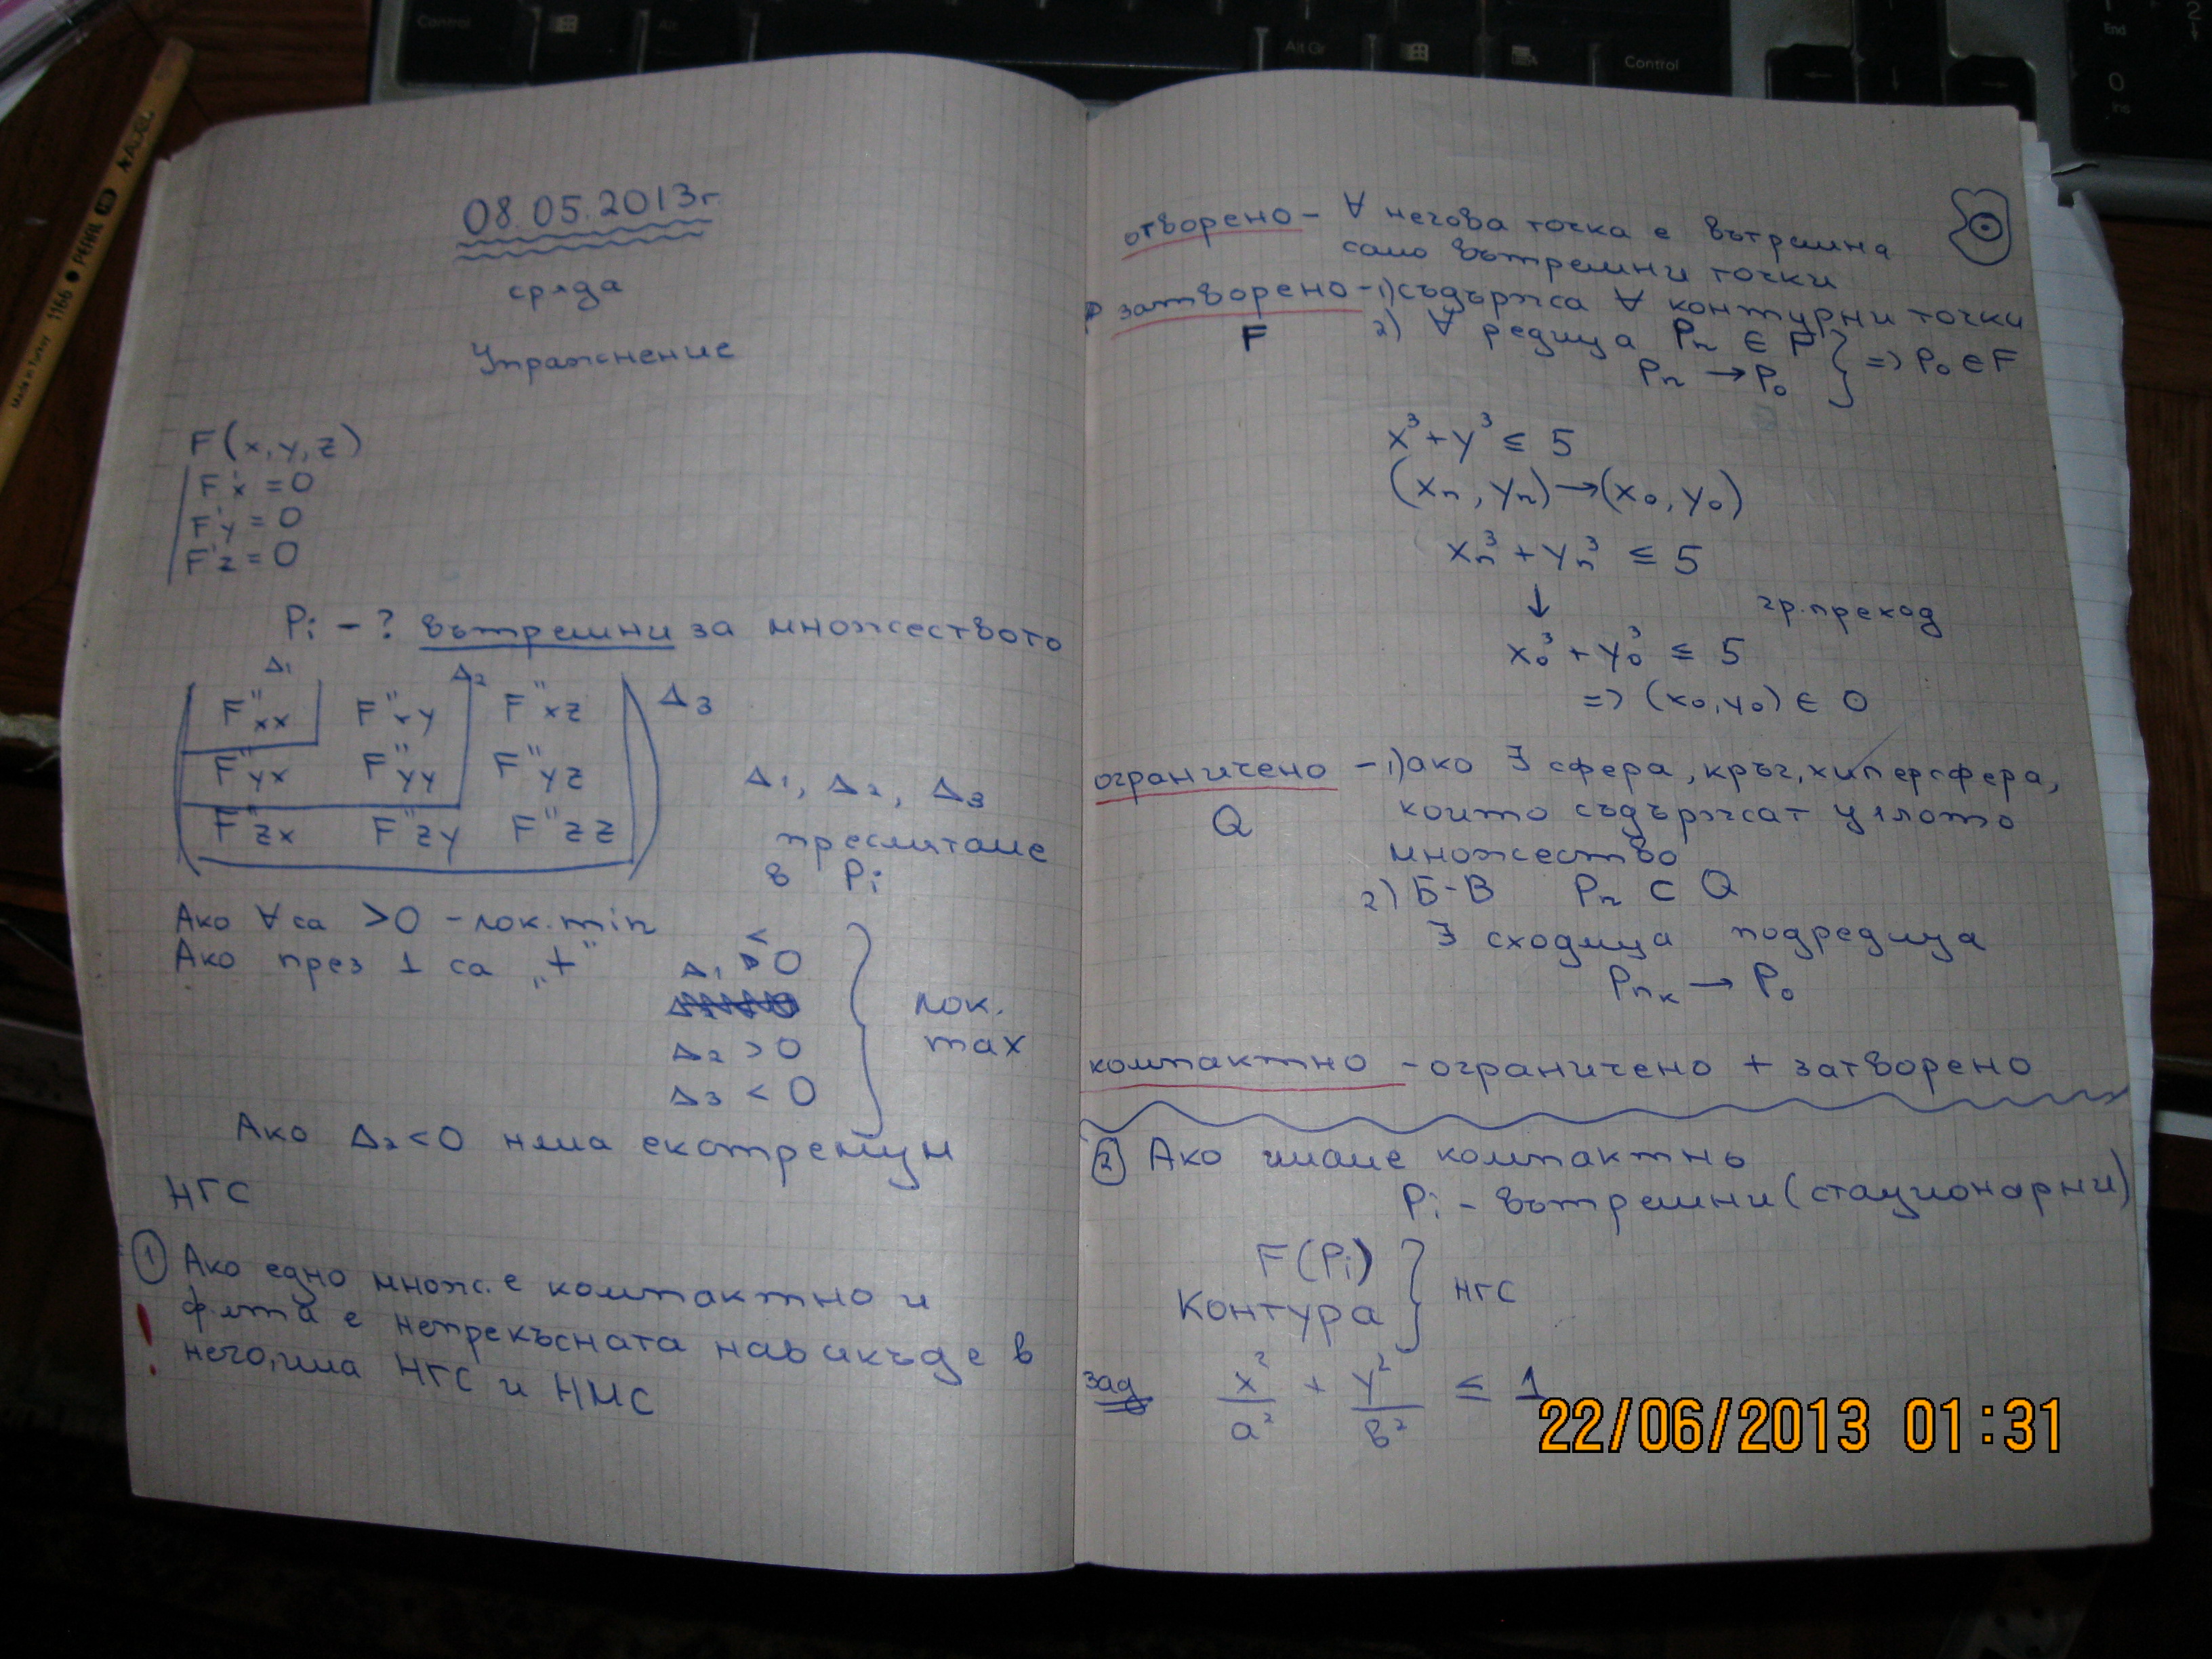 08.05.2013г.
сряда
Упражнение
F(x,y,z)
F'x = 0
F'y = 0
F'z = 0
Pi - ? вътрешни за множеството
Δ1 Δ2
F''xx F''xy F''xz Δ3
F''yx F''yy F''yz
F''zx F''zy F''zz
Δ1, Δ2, Δ3
пресмятаме
в Pi
Ако ∀ са >0 - лок. min
Ако през 1 са „+"
<
Δ1 > 0
Δ2 > 0
Δ3 < 0
лок.
max
Ако Δ2<0 няма екстремум
НГС
① Ако едно множ. е компактно и
ф-ята е непрекъсната навсякъде в
! него, има НГС и НМС
отворено - ∀ негова точка е вътрешна
само вътрешни точки
затворено - 1) съдържа ∀ контурни точки
F 2) ∀ редица Pn ∈ F
Pn → P0 } => P0 ∈ F
x³+y³ ≤ 5
(xn, yn) → (x0, y0)
xn³ + yn³ ≤ 5
↓ гр. преход
x0³ + y0³ ≤ 5
=> (x0, y0) ∈ O
ограничено - 1) ако ∃ сфера, кръг, хиперсфера,
Q които съдържат цялото
множество
2) Б-В Pn ⊂ Q
∃ сходяща подредица
Pnk → P0
компактно - ограничено + затворено
② Ако имаме компактно
Pi - вътрешни (стационарни)
F(Pi)
Контура } НГС
зад x²/a² + y²/b² ≤ 1
22/06/2013 01:31
Control
Alt
Alt Gr
Control
End
0
Ins
2
Made in Turkey 1166 ● PENSAN ADEL